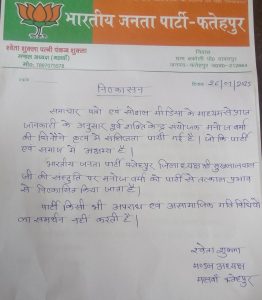 भारतीय जनता पार्टी-फतेहपुर
श्वेता शुक्ला पत्नी पंकज शुक्ला
मण्डल अध्यक्ष
मो०:
निवास :
दिनांक
निष्कासन
समाचार पत्रों एवं सोशल मीडिया के माध्यम से प्राप्त
जानकारी के अनुसार पूर्व शक्ति केन्द्र संयोजक मनोज वर्मा
की घिनौने कृत्य में संलिप्तता पायी गई है। जो कि पार्टी
एवं समाज में अक्षम्य है।
भारतीय जनता पार्टी फतेहपुर जिलाध्यक्ष श्री मुखलाल पाल
जी की संस्तुति पर मनोज वर्मा को पार्टी से तत्काल प्रभाव
से निष्कासित किया जाता है।
पार्टी किसी भी अपराध एवं असामाजिक गतिविधियों
का समर्थन नहीं करती है।
श्वेता शुक्ला
मण्डल अध्यक्ष
फतेहपुर